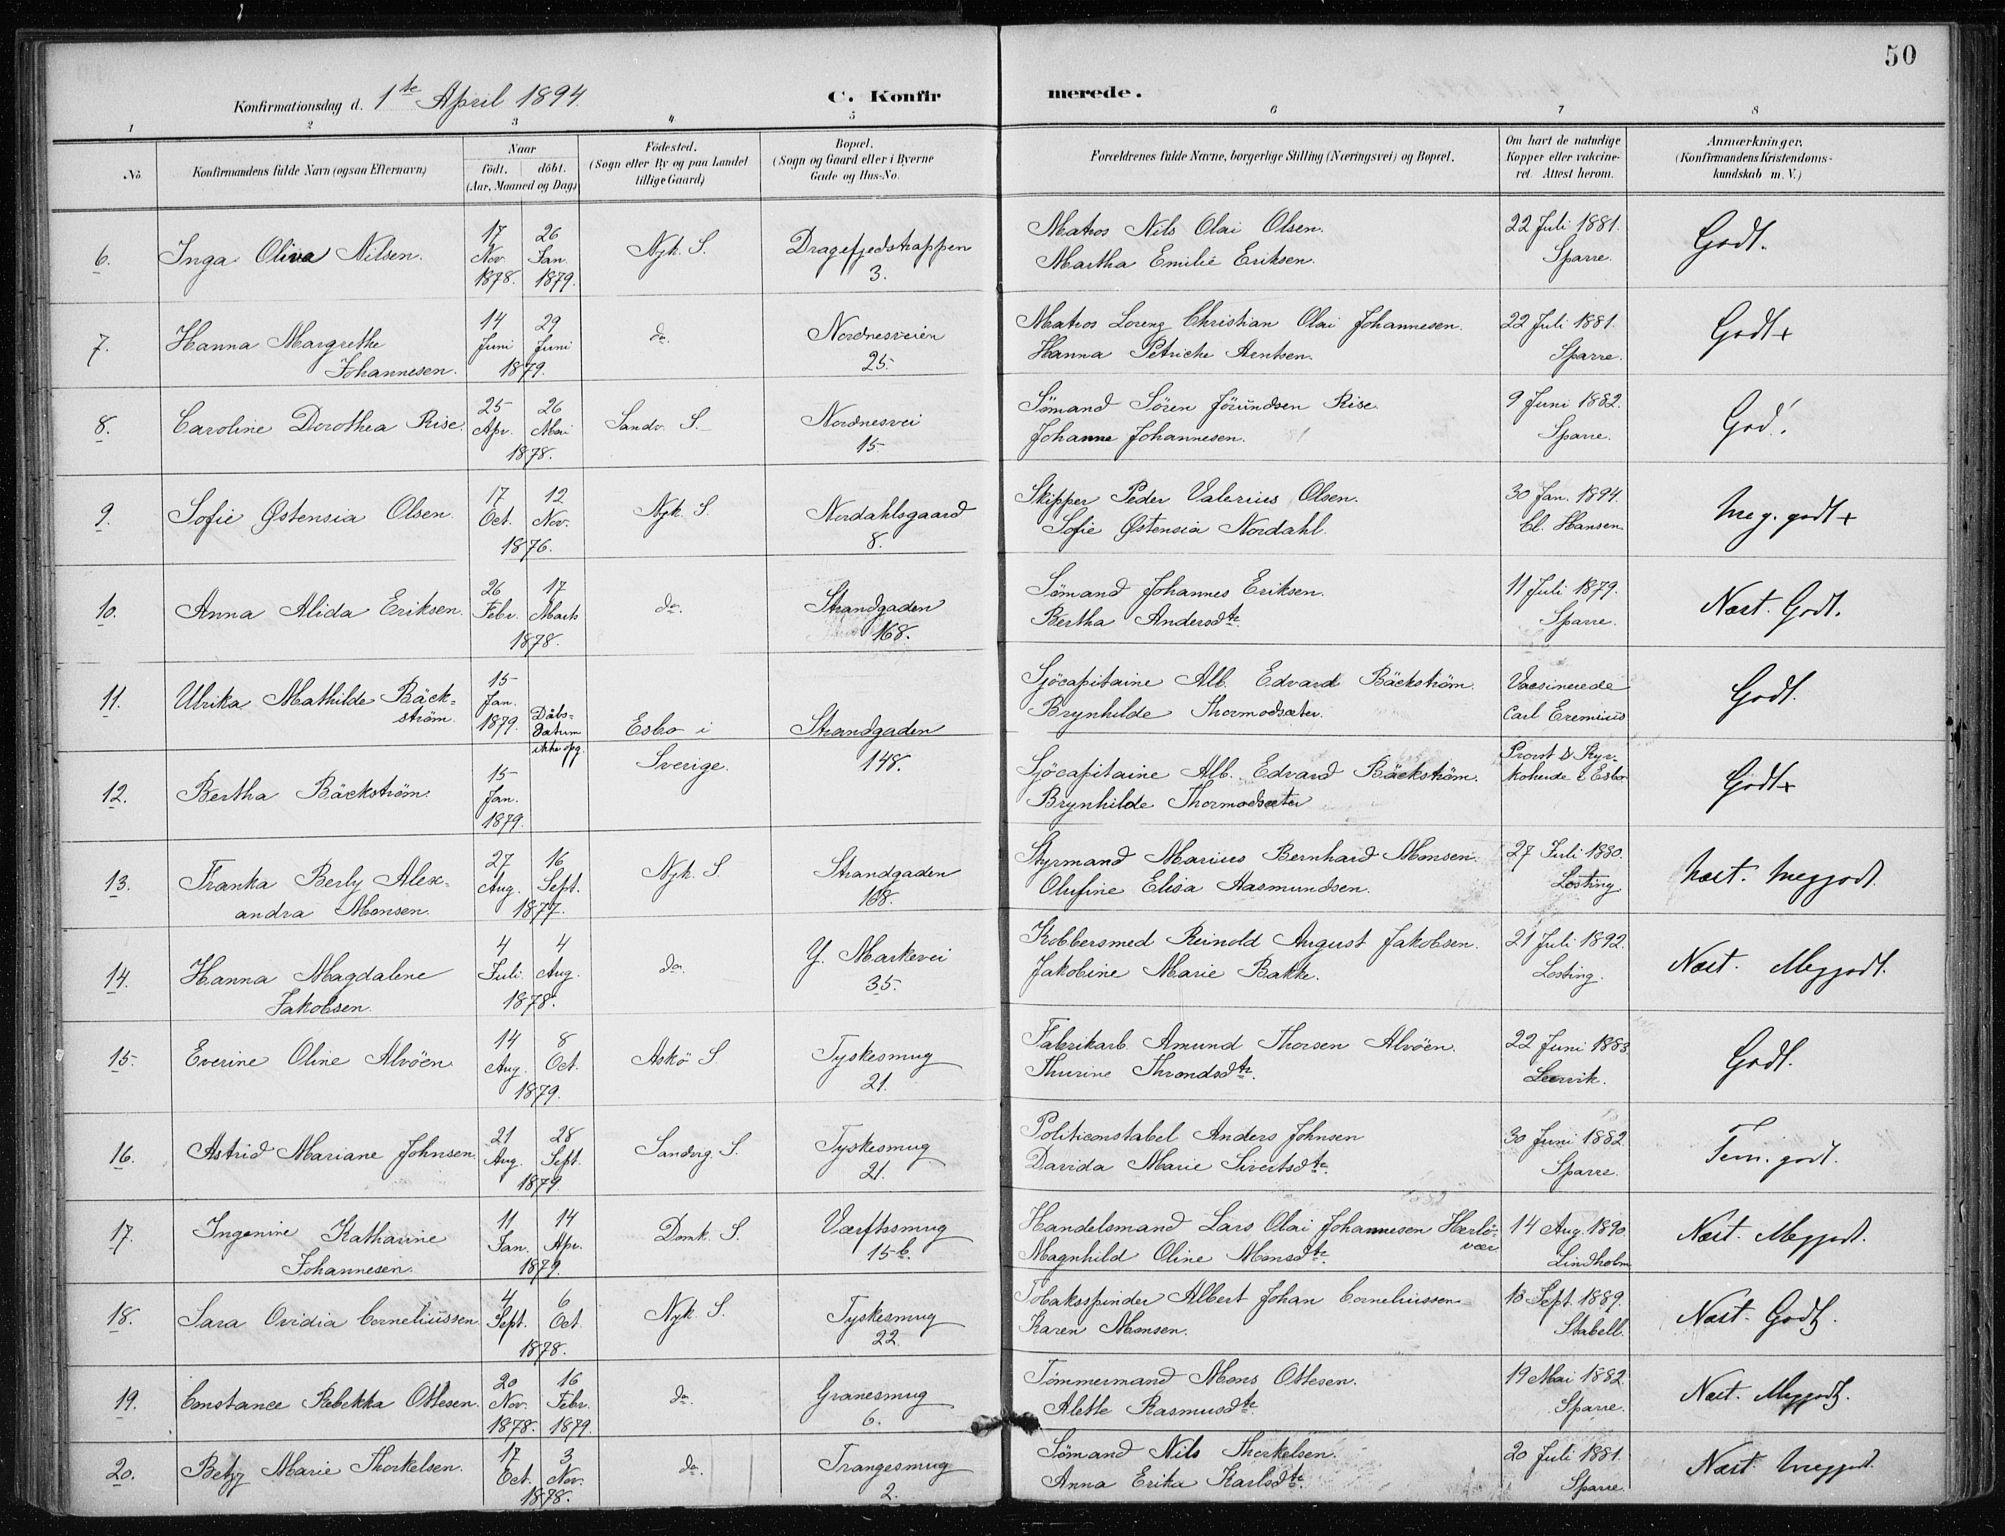 50
Konfirmationsdag d. 1ste April 1894. C. Konfirmerede.
1 2 3 4 5 6 7 8
No. Konfirmandens fulde Navn (ogsaa Efternavn) Naar födt. döbt. (Aar, Maaned og Dag) Födested. (Sogn eller By og paa Landet tillige Gaard) Bopæl. (Sogn og Gaard eller i Byerne Gade og Hus-No. Forældrenes fulde Navne, borgerlige Stilling (Næringsvei) og Bopæl. Om havt de naturlige Kopper eller vakcineret. Attest herom. Anmærkninger. (Konfirmandens Kristendomskundskab m. V.)
6. Inga Oliva Nilsen. 17 Nov. 1878. 26 Jan. 1879. Nyk. S. Dragefjedstrappen 3. Matros Nils Olai Olsen. Martha Emilie Eriksen. 22 Juli 1881. Sparre. Godt.
7. Hanna Margrethe Johannesen. 14 Juni 29 Juni 1879. do. Nordnesveien 25. Matros Lorenz Christian Olai Johannesen. Hanna Petriche Arntsen. 22 Juli 1881. Sparre. Godt+
8. Caroline Dorothea Rise. 25 Apr. 26 Mai 1878. Sandv. S. Nordnesvei 15 Sömand Sören Jörundsen Rise. Johanne Johannesen. 9 Juni 1882. Sparre. God!
9. Sofie Østensia Olsen. 17 Oct. 12 Nov. 1876. Nyk. S. Nordahlsgaard 8. Skipper Peder Valerius Olsen. Sofie Østensia Nordahl. 30 Jan. 1894. Cl. Hansen Meg. godt+
10. Anna Alida Eriksen. 26 Febr. 17 Marts 1878. do. Strandgaden 168. Sömand Johannes Eriksen. Bertha Andersdtr. 11 Juli 1879. Sparre. Næst. Godt.
11. Ulrika Mathilde Bäckström. 15 Jan. 1879. Dåbsdatum ikke opg. Esbo i Sverige. Strandgaden 148. Sjöcapitaine Alb. Edvard Bäckström. Brynhilde Thormodsæter. Vacsinerede Carl Eremius Godt.
12. Bertha Bäckström. 15 Jan. 1879. Sjöcapitaine Alb. Edvard Bäckström. Brynhilde Thormodsæter Provst & Kyrkoherde i Esbo Godt+
13. Franka Berly Alexandra Monsen. 27 Aug. 16 Sept. 1877. Nyk. S. Strandgaden 168. Styrmand Marius Bernhard Monsen. Olufine Elisa Aasmundsen. 27 Juli 1880. Losting. Næst. Meggodt.
14. Hanna Magdalene Jakobsen. 4 Juli 4 Aug. 1878. do. Y. Markevei 35. Kobbersmed Reinold August Jakobsen. Jakobine Marie Bakke. 21 Juli 1892. Losting. Næst. Meggodt.
15. Everine Oline Alvöen 14 Aug. 8 Oct. 1879. Askö S Tyskesmug 21. Fabrikarb. Amund Thorsen Alvöen. Thurine Throndsdtr. 22 Juni 1883. Leervik. Godt.
16. Astrid Mariane Johnsen. 21 Aug. 28 Sept. 1879. Sandvig. S. Tyskesmug 21. Politiconstabel Anders Johnsen Davida Marie Sivertsdtr. 30 Juni 1882. Sparre. Tem. godt.
17. Ingenine Katharine Johannesen. 11 Jan. 14 Apr. 1879. Domk. S. Værftssmug 15 b. Handelsmand Lars Olai Johannesen Herlövær Magnhild Oline Monsdtr. 14 Aug. 1890. Lindholm Næst. Meggodt.
18. Sara Ovidia Corneliussen 4 Sept. 6 Oct. 1878. Nyk. S. Tyskesmug 22. Tobaksspinder Albert Johan Corneliussen Karen Monsen. 18 Sept. 1889. Stabell. Næst. Godt.
19. Constance Rebekka Ottesen. 20 Nov. 1878. 16 Febr. 1879. do. Granesmug 6. Tömmermand Mons Ottesen. Alette Rasmusdtr. 19 Mai 1882. Sparre. Næst. Meggodt.
20. Betzy Marie Thorkelsen. 17 Oct. 3 Nov. 1878. do. Trangesmug 2. Sömand Nils Thorkelsen. Anna Erika Karlsdtr. 20 Juli 1881. Sparre. Næst. Meggodt.